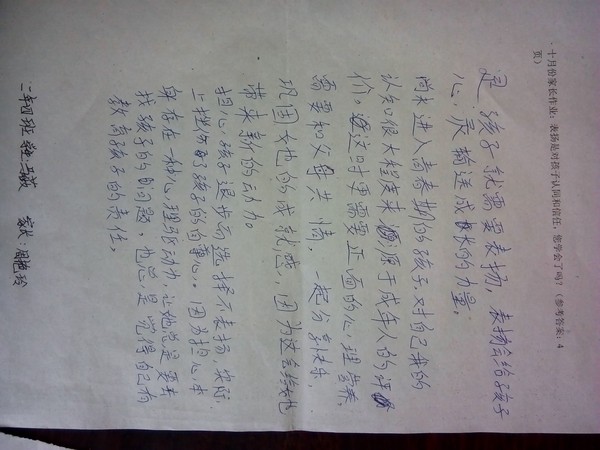 十月份家长作业：表扬是对孩子认同和信任，您学会了吗？（参考答案：4
页）
是孩子就需要表扬。表扬会给孩子
心灵输送成长的力量。
尚未进入青春期的孩子对自我的
认知很大程度来源于成年人的评
价。这时更需要正面的心理营养，
需要和父母共情，一起分享快乐，
巩固她的成就感，因为这会给她
带来新的动力。
担心孩子退步而选择不表扬，实际
上挫伤的孩子的自尊心。因为担心本
身存在一种心理驱动力，让她总是要去
找孩子的的问题，也总是觉得自己有
教育孩子的责任。
二年四班 家长：周艳玲